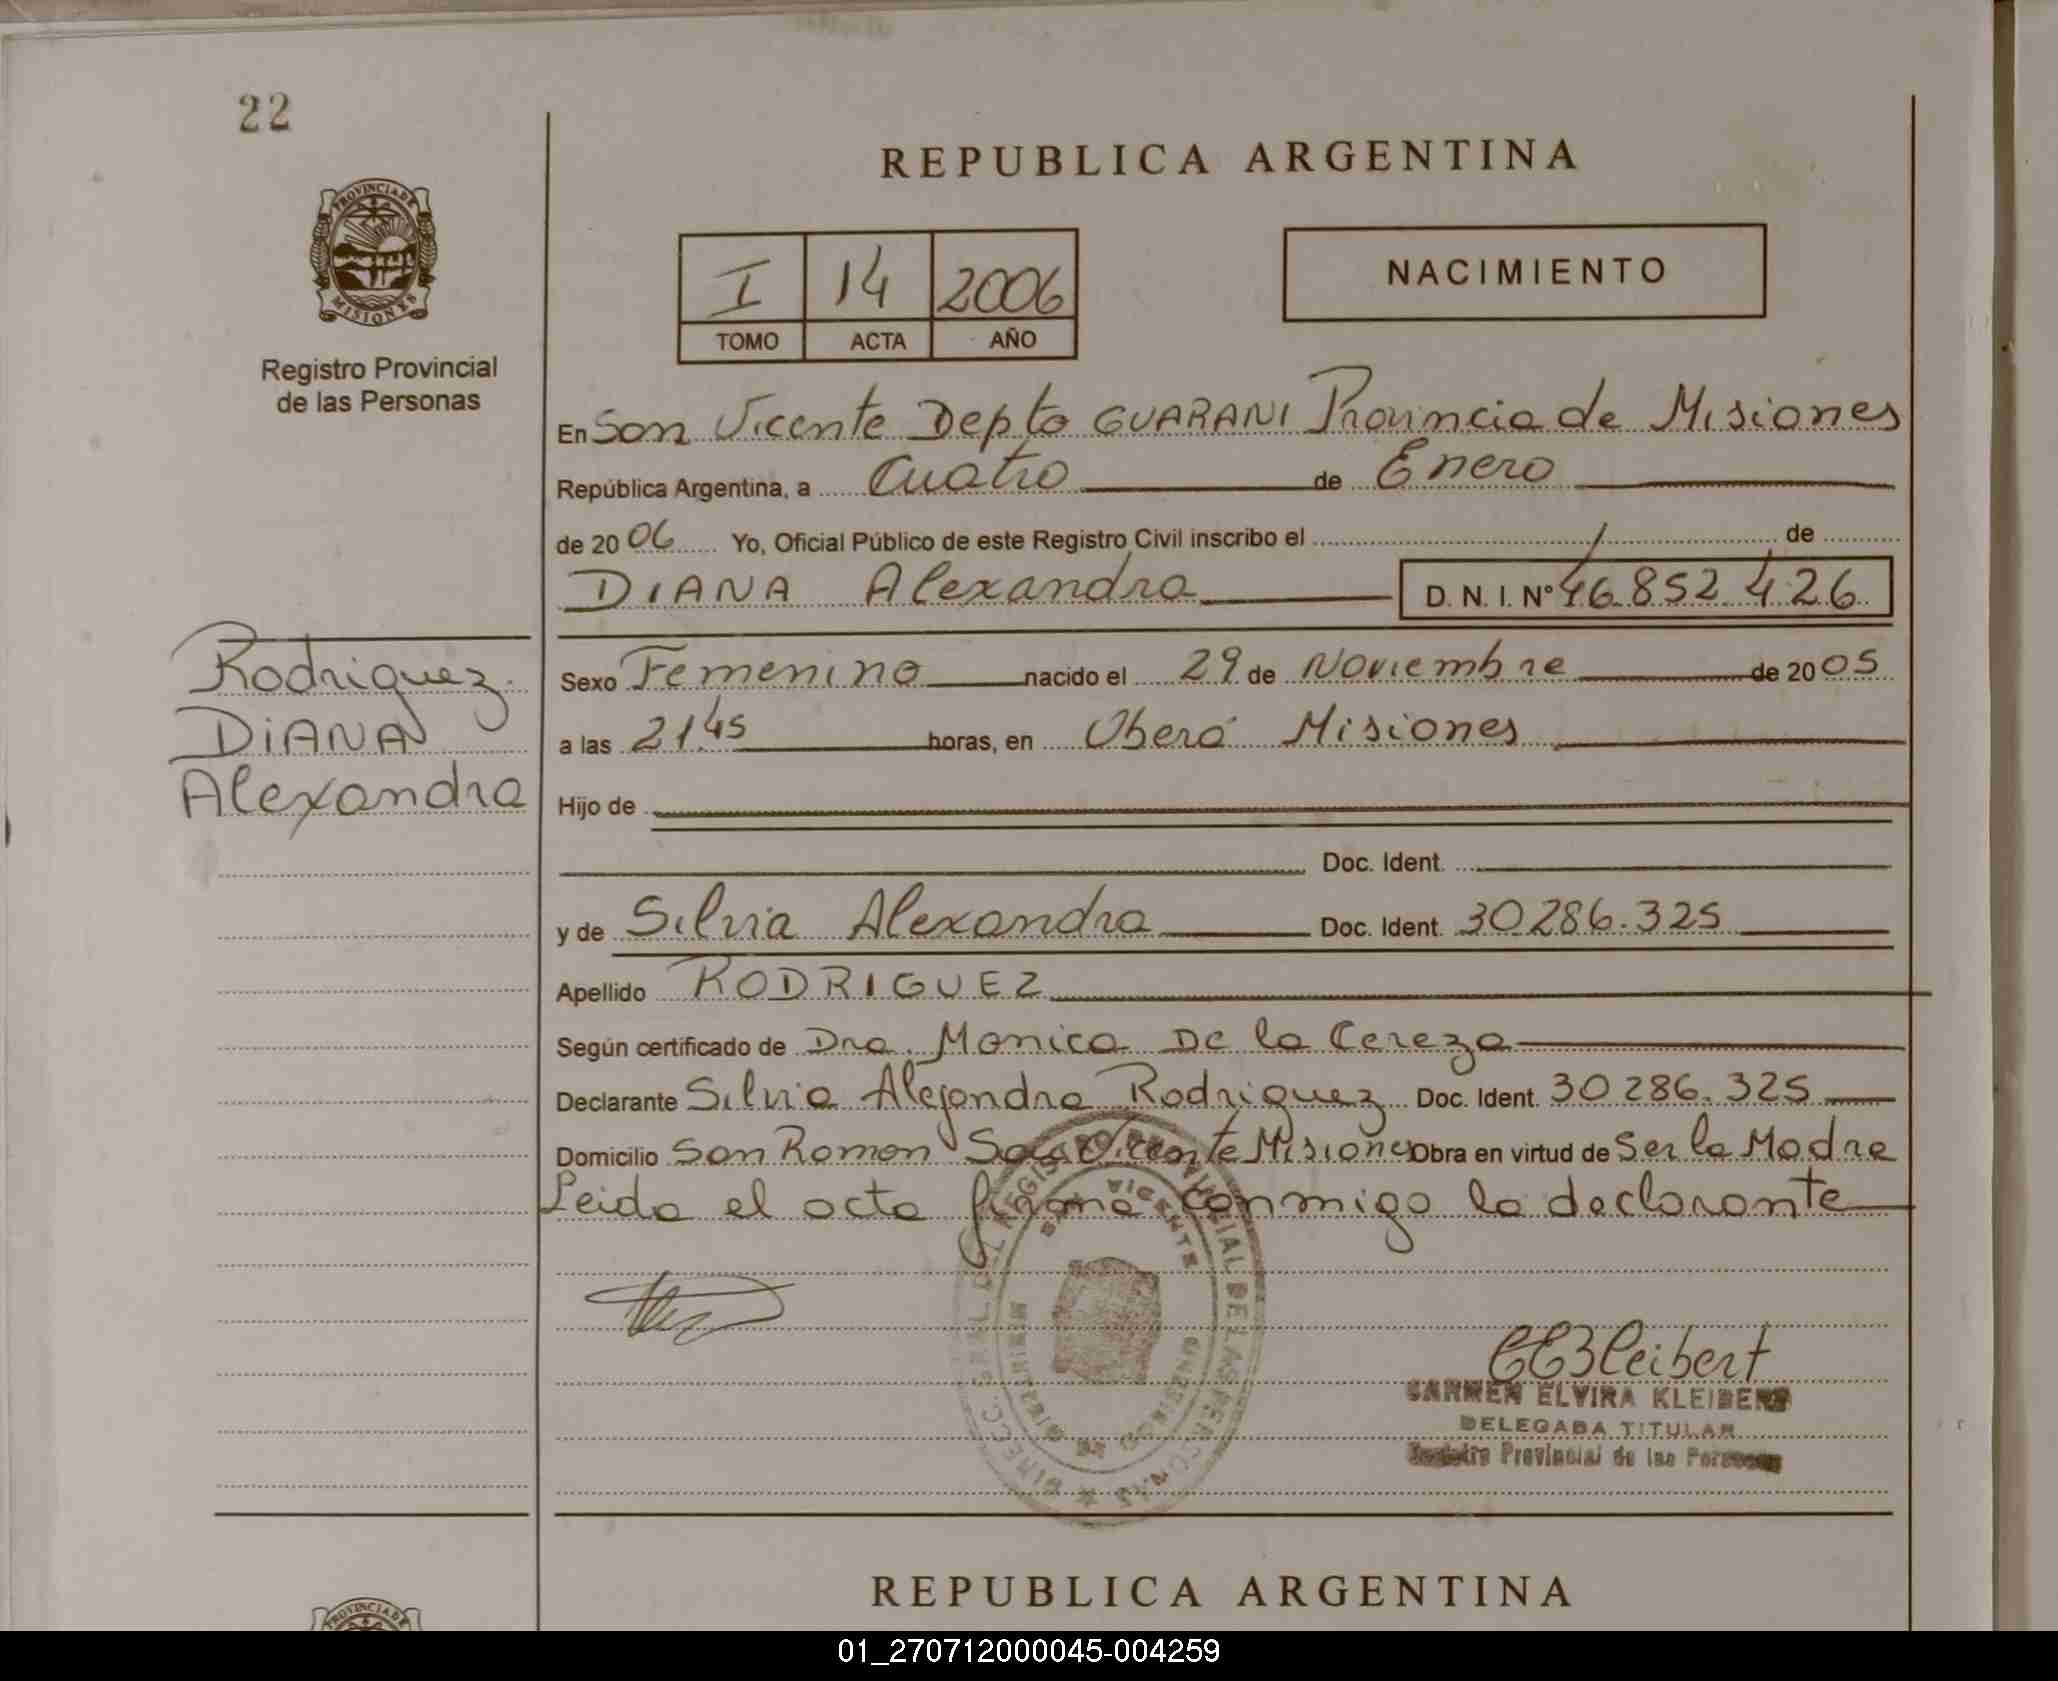 22
REPUBLICA ARGENTINA
PROVINCIA DE
MISIONES
Registro Provincial
de las Personas
I 14 2006
TOMO ACTA AÑO
NACIMIENTO
En San Vicente Depto GUARANI Provincia de Misiones
República Argentina, a Cuatro de Enero
de 2006 Yo, Oficial Público de este Registro Civil inscribo el / de
DIANA Alexandra D. N. I. Nº 46.852.426
Rodriguez
DIANA
Alexandra
Sexo Femenino nacido el 29 de Noviembre de 2005
a las 21.45 horas, en Oberá Misiones
Hijo de
Doc. Ident.
y de Silvia Alexandra Doc. Ident. 30286.325
Apellido RODRIGUEZ
Según certificado de Dra. Monica De la Cereza
Declarante Silvia Alejandra Rodriguez Doc. Ident. 30286.325
Domicilio San Ramon San Vicente Misiones Obra en virtud de Ser la Madre
Leida el acta firma conmigo la declarante
REGISTRO PROVINCIAL DE LAS PERSONAS
SAN VICENTE
MISIONES
CARMEN ELVIRA KLEIBERT
DELEGADA TITULAR
Registro Provincial de las Personas
REPUBLICA ARGENTINA
PROVINCIA DE
01_270712000045-004259